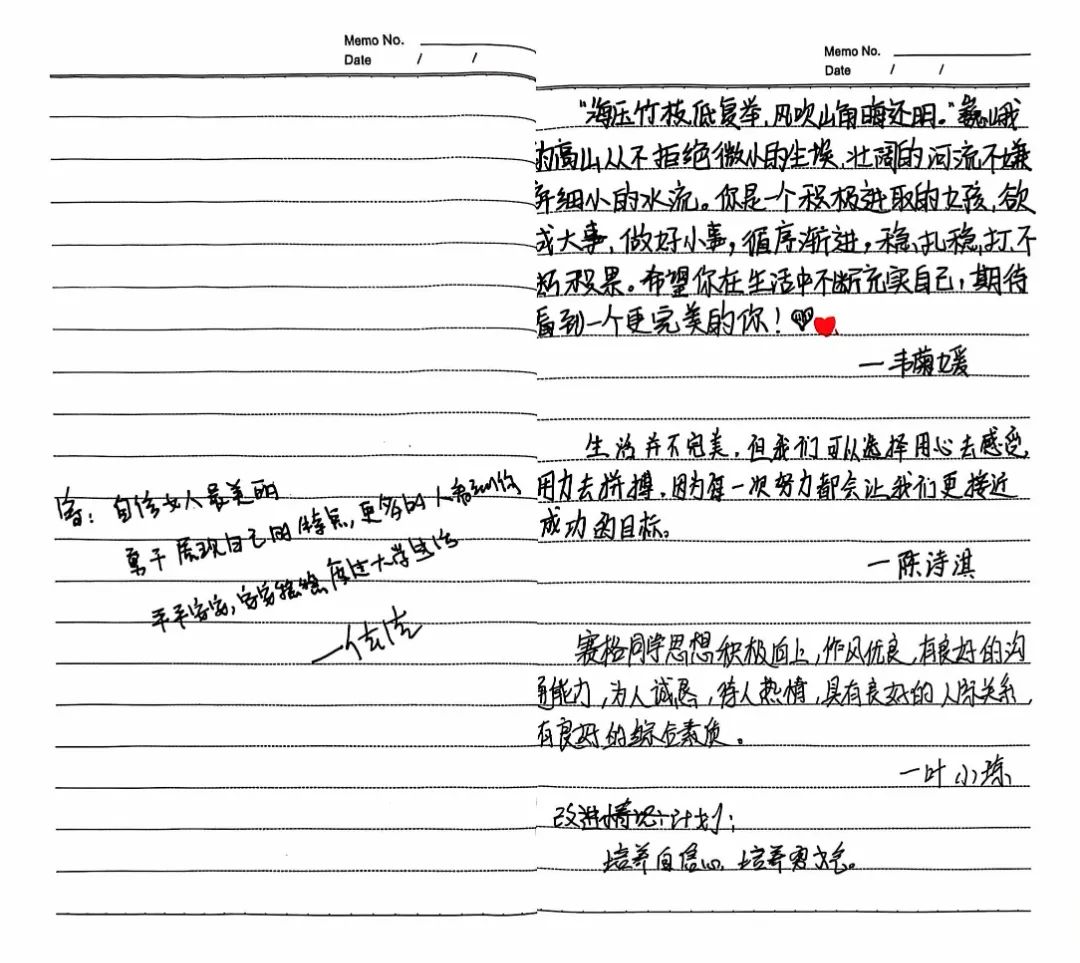 Memo No.
Date / /
自信女人最美丽
勇于展现自己的特点,更多的人看到你
平平安安,安安稳稳度过大学生活
Memo No.
Date / /
"海压竹枝低复举,风吹山角晦还明。"巍峨
的高山从不拒绝微小的尘埃,壮阔的河流不嫌
弃细小的水流。你是一个积极进取的女孩,欲
成大事,做好小事,循序渐进,稳扎稳打,不
计较结果。希望你在生活中不断充实自己,期待
看到一个更完美的你!
—韦菊媛
生活并不完美,但我们可以选择用心去感受,
用力去拼搏,因为每一次努力都会让我们更接近
成功的目标。
—陈诗淇
赛格同学思想积极向上,作风优良,有良好的沟
通能力,为人诚恳,待人热情,具有良好的人际关系,
有良好的综合素质。
—叶小琼
改进情况计划:
培养自信心,培养勇气。